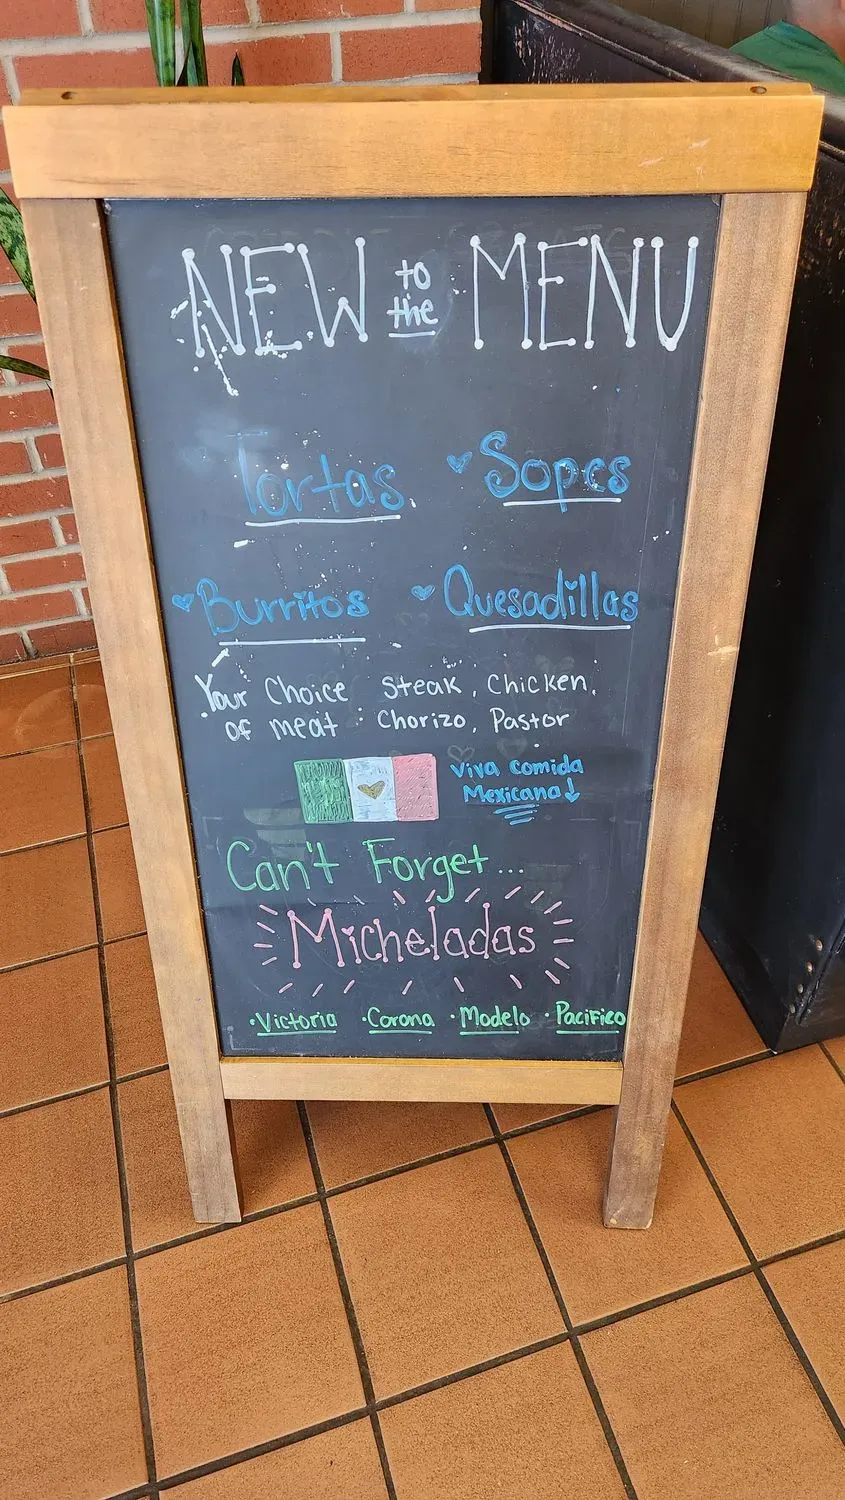 NEW to the MENU
Tortas ♥ Sopes
♥ Burritos ♥ Quesadillas
Your Choice Steak, Chicken,
of meat : Chorizo, Pastor
Viva Comida
Mexicana ↓
Can't Forget...
Micheladas
·Victoria ·Corona ·Modelo ·Pacifico